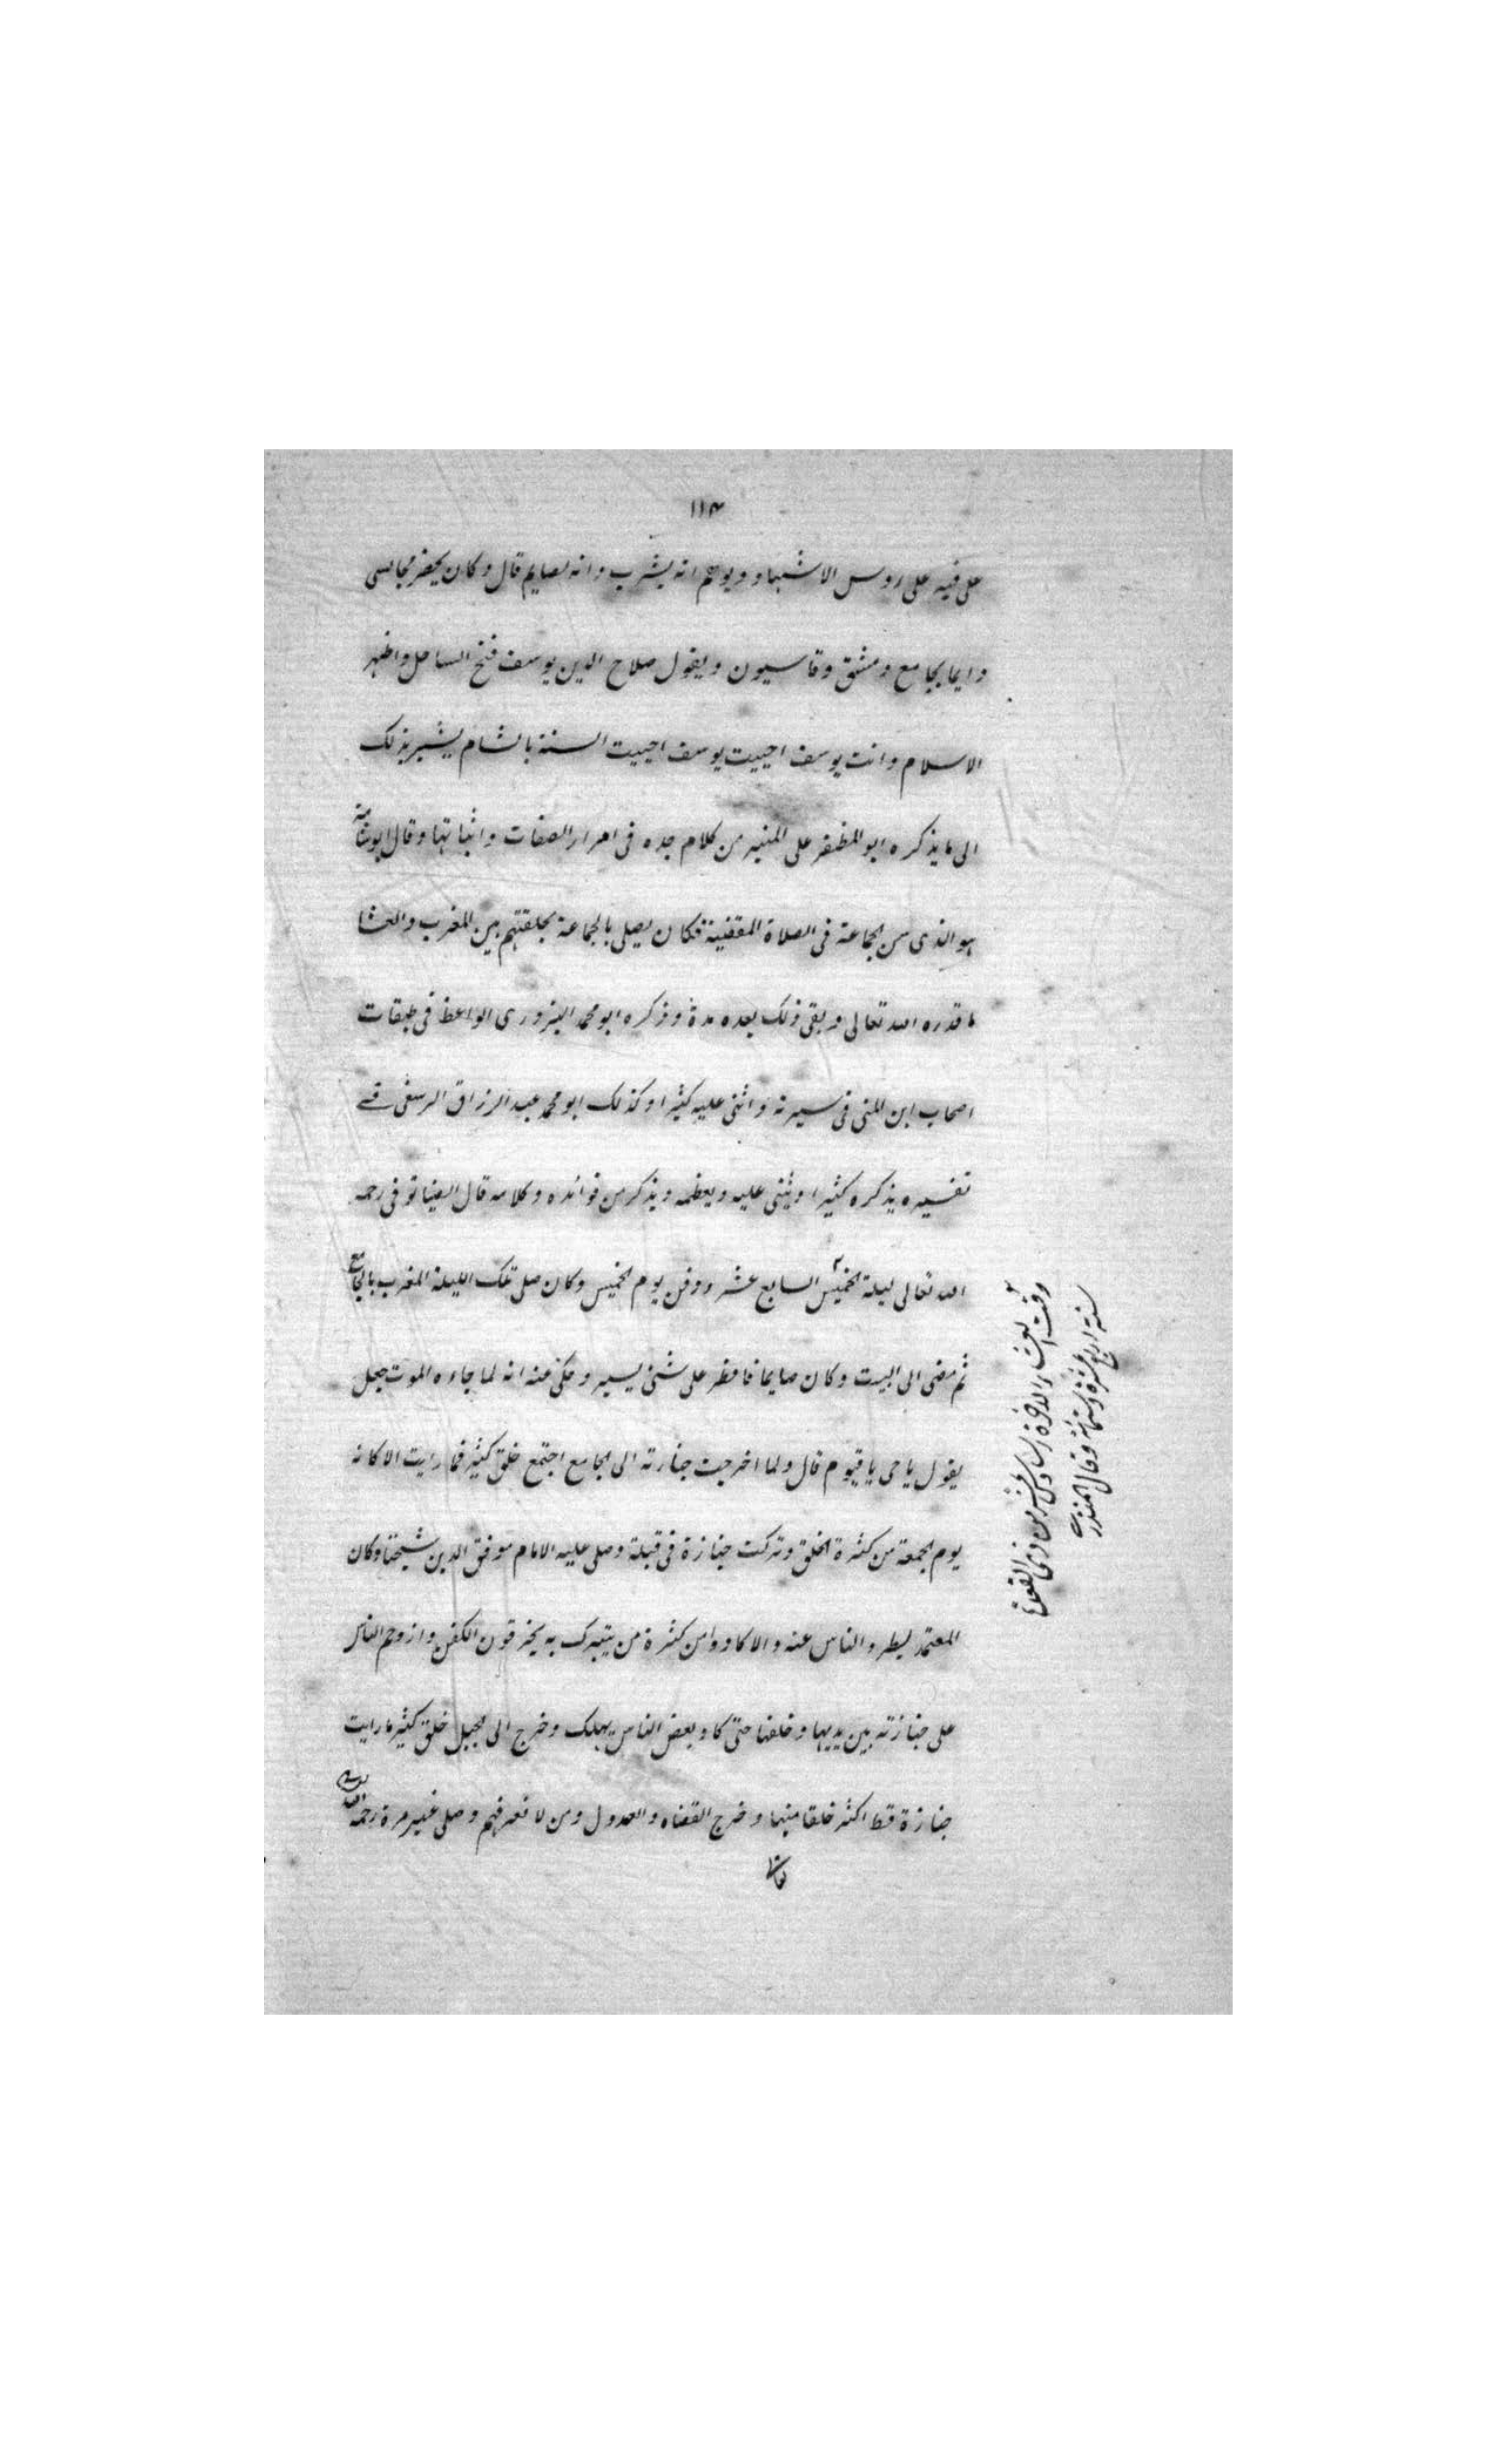 ١١٣
على فيه على روس الاشهاد ويوهم انه يشرب وانه لصايم قال وكان يحضر مجالسى
دايما بجامع دمشق وقاسيون ويقول صلاح الدين يوسف فتح الساحل واظهر
الاسلام وانت يوسف احييت يوسف احييت السنة بالشام يشير بذلك
الى ما يذكره ابو المظفر على المنبر من كلام جده فى امرار الصفات واثباتها وقال ابو شامة
هو الذى سن الجماعة فى الصلاة المقضية فكان يصلى بالجماعة بحلقتهم بين المغرب والعشا
ما قدره الله تعالى وبقى ذلك بعده مدة وذكره ابو محمد البزورى الواعظ فى طبقات
اصحاب ابن المنى فى سيرته واثنى عليه كثيرا وكذلك ابو محمد عبد الرزاق الرسغى فى
تفسيره يذكره كثيرا ويثنى عليه ويعظمه ويذكر من فوائده وكلامه قال الضيا توفى رحمه
الله تعالى ليلة الخميس السابع عشر ودفن يوم الخميس وكان صلى تلك الليلة المغرب بالجامع
ثم مضى الى البيت وكان صايما فافطر على شئ يسير وحكى عنه انه لما جاءه الموت جعل
يقول يا حى يا قيوم قال ولما اخرجت جنازته الى الجامع اجتمع خلق كثير فما رايت الا كانه
يوم الجمعة من كثرة الخلق وتركت جنازة فى قبلة وصلى عليه الامام موفق الدين شيخنا وكان
المعتمد يطرد الناس عنه والا كادوا من كثرة من يتبرك به يخرقون الكفن وازدحم الناس
على جنازته بين يديها وخلفها حتى كاد بعض الناس يهلك وخرج الى الجبل خلق كثير ما رايت
جنازة قط اكثر خلقا منها وخرج القضاه والعدول ومن لا نعرفهم وصلى غير مرة رحمه الله
وقت العشاء الاخرة السادس عشر من ذى القعدة
سنة اربع عشرة وستمائة وقال المنذرى